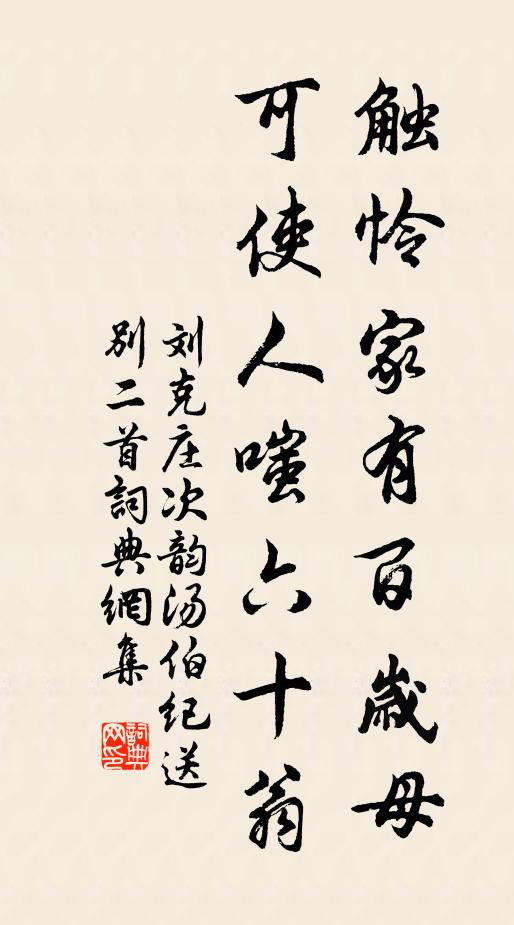 触怜家有百歳母
可使人嗤六十翁
刘克庄次韵汤伯纪送
别二首詞典網集
詞典网印